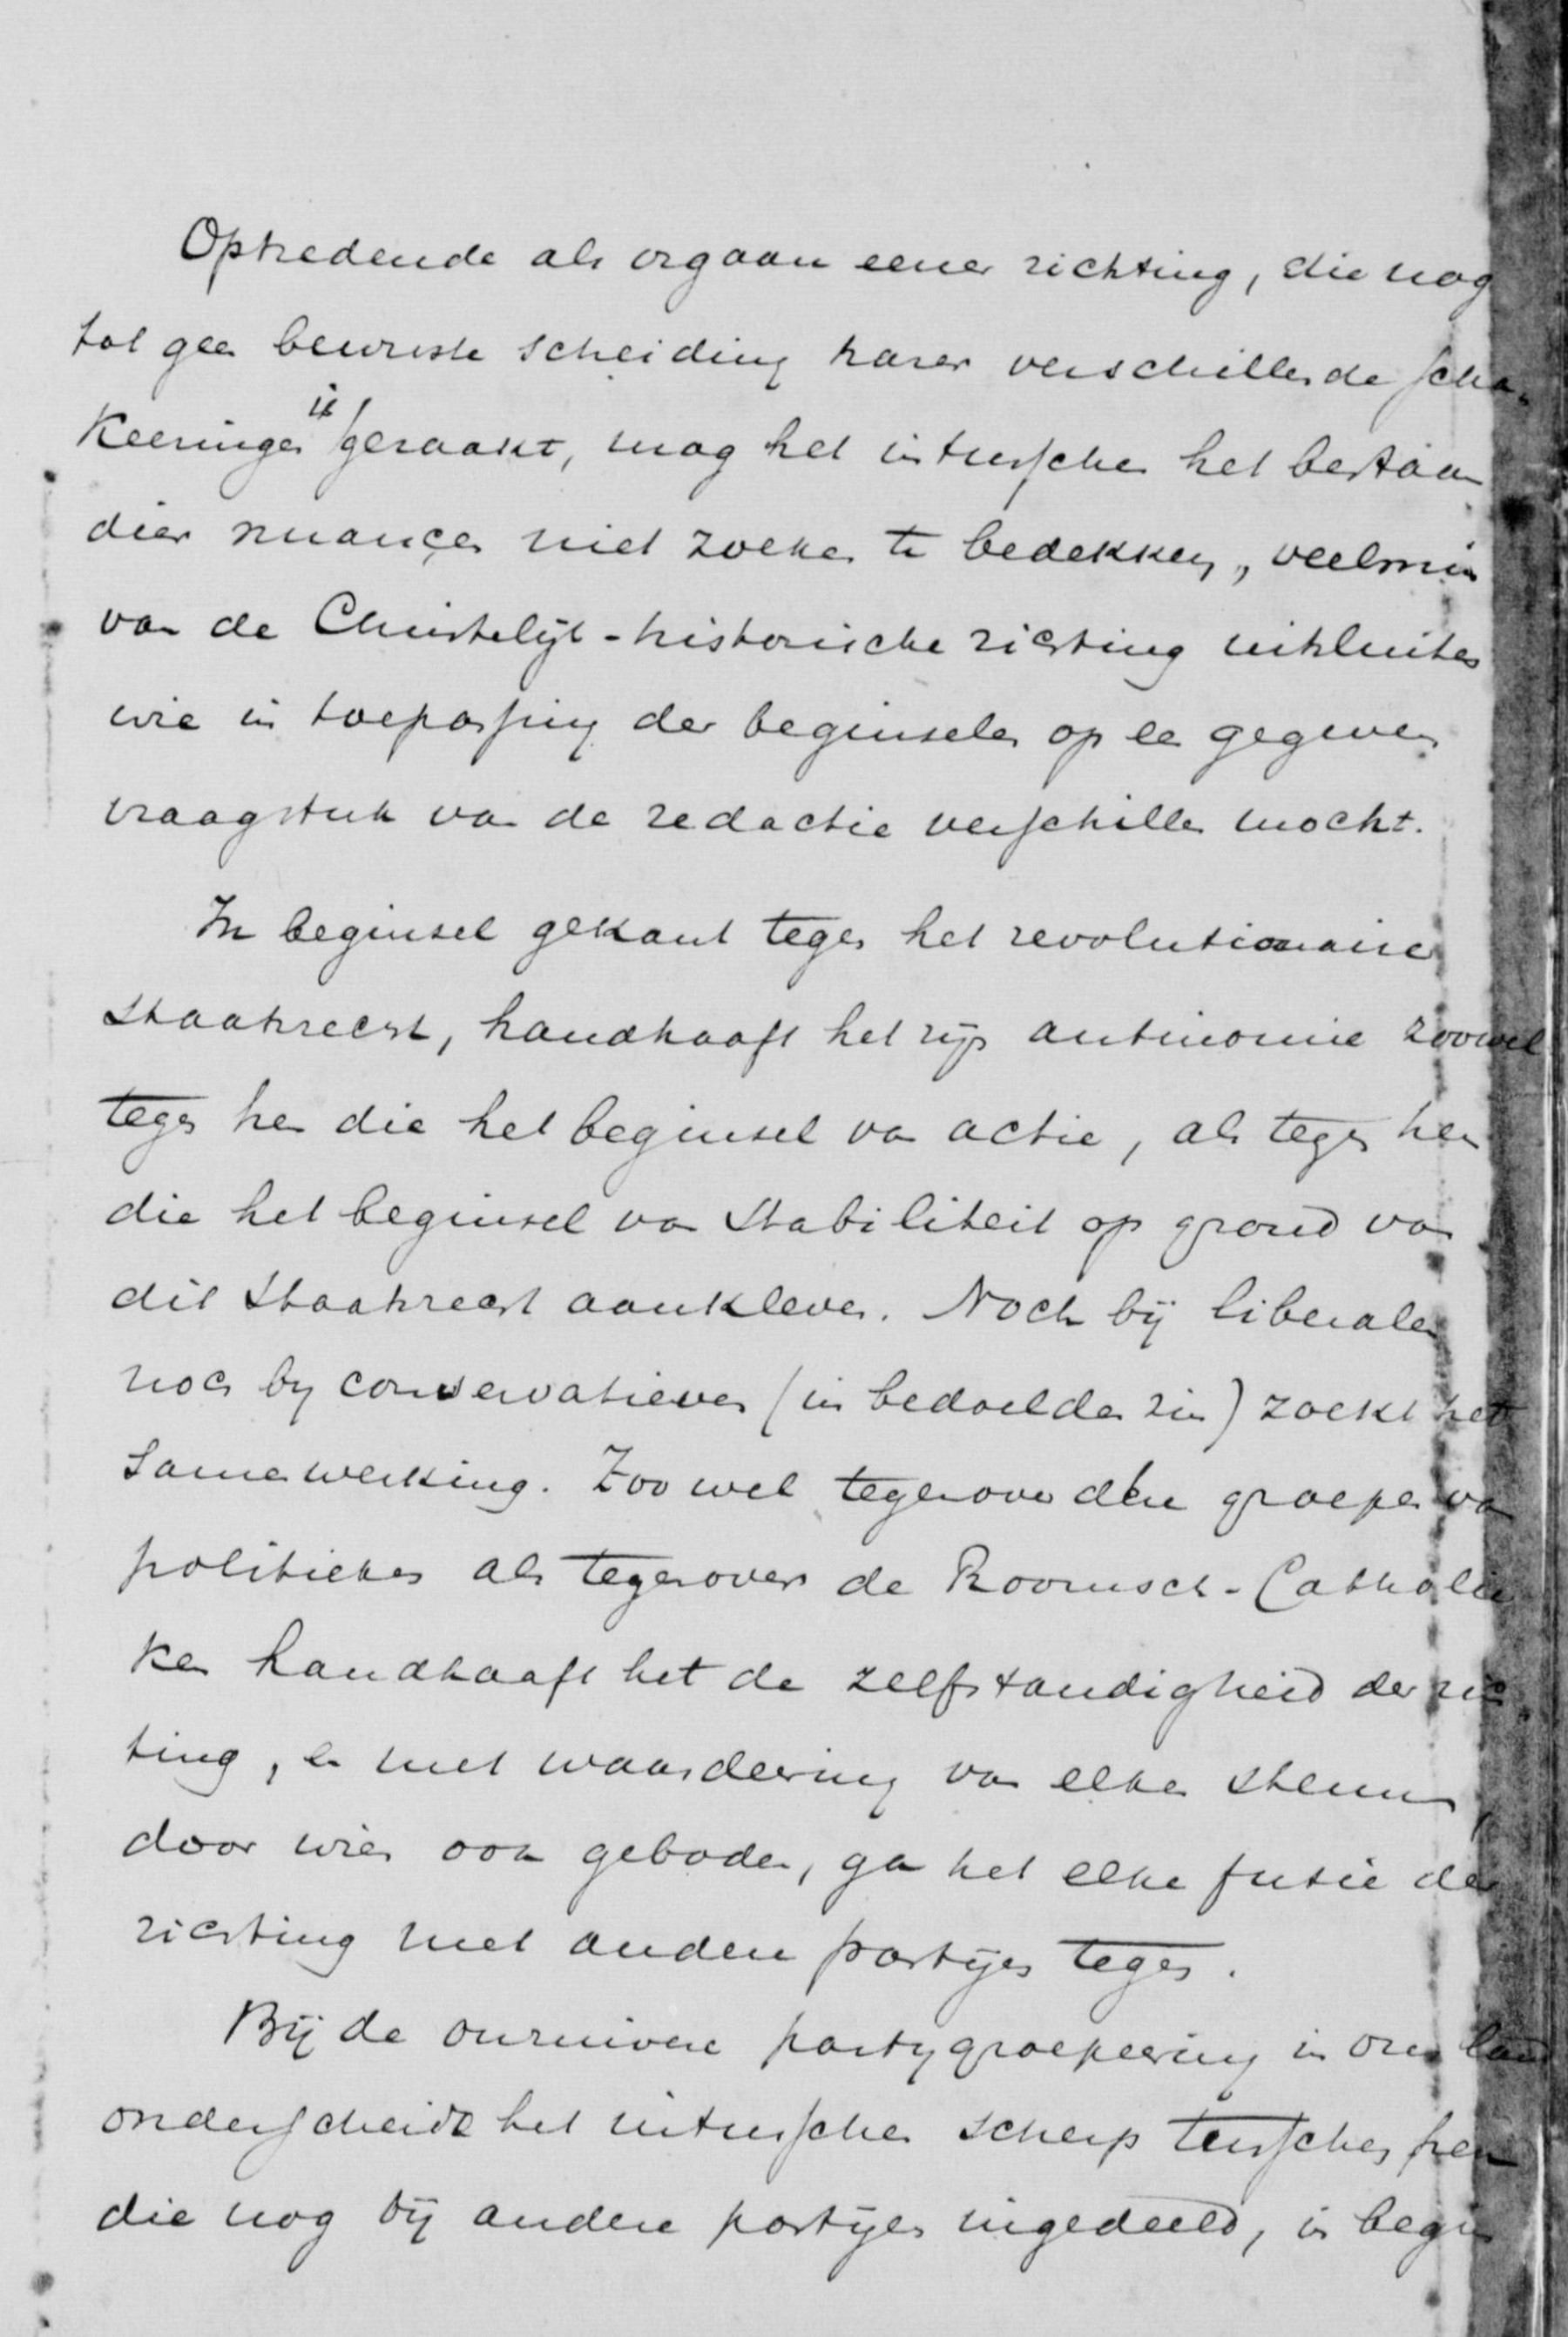 Optredende als orgaan eener richting, die nog
tot geen bewuste scheiding harer verschillende scha-
keeringen is geraakt, mag het intusschen het bestaan
dier nuançen niet zoeken te bedekken, veelmin
van de Christelijk-historische richting uitsluiten
wie in toepassing der beginselen op een gegeven
vraagstuk van de redactie verschillen mocht.
In beginsel gekant tegen het revolutionaire
Staatsrecht, handhaaft het zijn antinomie zoowel
tegen hen die het beginsel van actie, als tegen hen
die het beginsel van Stabiliteit op grond van
dit Staatsrecht aankleven. Noch bij liberalen
noch by conservatieven (in bedoelden zin) zoekt het
Samenwerking. Zoowel tegenover groepen van
politieken als tegenover de Roomsch-Catholie
ken handhaaft het de zelfstandigheid der rich
ting, en met waardeering van elken steun,
door wien ook geboden, ga het elke fusie der
richting met andere partijen tegen.
Bij de onzuivere partygroepeering in ons land
onderscheidt het intusschen scherp tusschen hen
die nog bij andere partijen ingedeeld, in begin